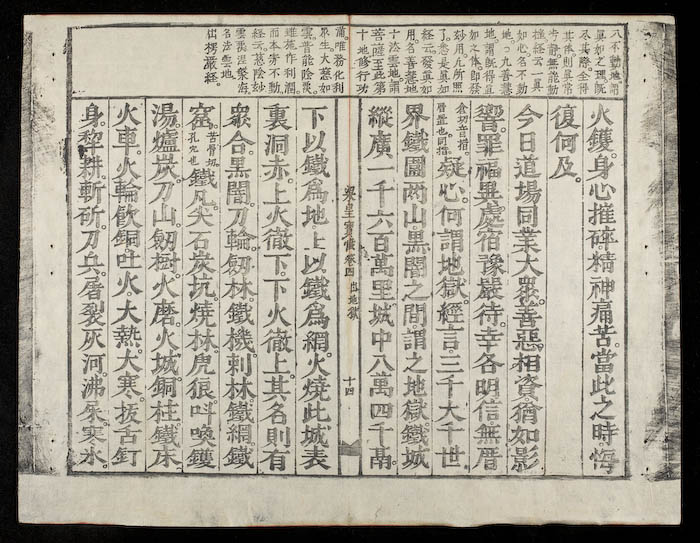 八不動地謂
眞如之理旣
盡其際全得
其体則眞常
靜無能動
搖經云一眞
如心名不動
地○九善慧
地謂旣得眞
如之体卽發
妙用凡所照
了悉是眞如
經云發眞如
用名善慧地
十法雲地謂
菩薩至此第
十地修行功
唯務化利
衆生大慈如
雲普能陰覆
雖施作利潤
而本寂不動
經云慈陰妙
雲覆涅槃海
名法雲地
出楞嚴經
火鑊。身心摧碎。精神痛苦。當此之時。悔
復何及。
今日道場同業大衆。善惡相資。猶如影
響。罪福異處。宿豫嚴待。幸各明信。無厝
疑心。何謂地獄。經言。三千大千世
界。鐵圍兩山。黑闇之間。謂之地獄。鐵城
縱廣一千六百萬里。城中八萬四千鬲。
梁皇寶懺卷四 出地獄 十四
下以鐵爲地。上以鐵爲網。火燒此城。表
裏洞赤。上火徹下。下火徹上。其名則有
衆合。黑闇。刀輪。劒林。鐵機。刺林。鐵網。鐵
窟。苦骨切孔穴也鐵凡。尖石。炭坑。燒林。虎狼。叫喚。鑊
湯。爐炭。刀山。劒樹。火磨。火城。銅柱。鐵床。
火車。火輪。飮銅。吐火。大熱。大寒。拔舌。釘
身。犂耕。斬斫。刀兵。屠裂。灰河。沸屎。寒氷。